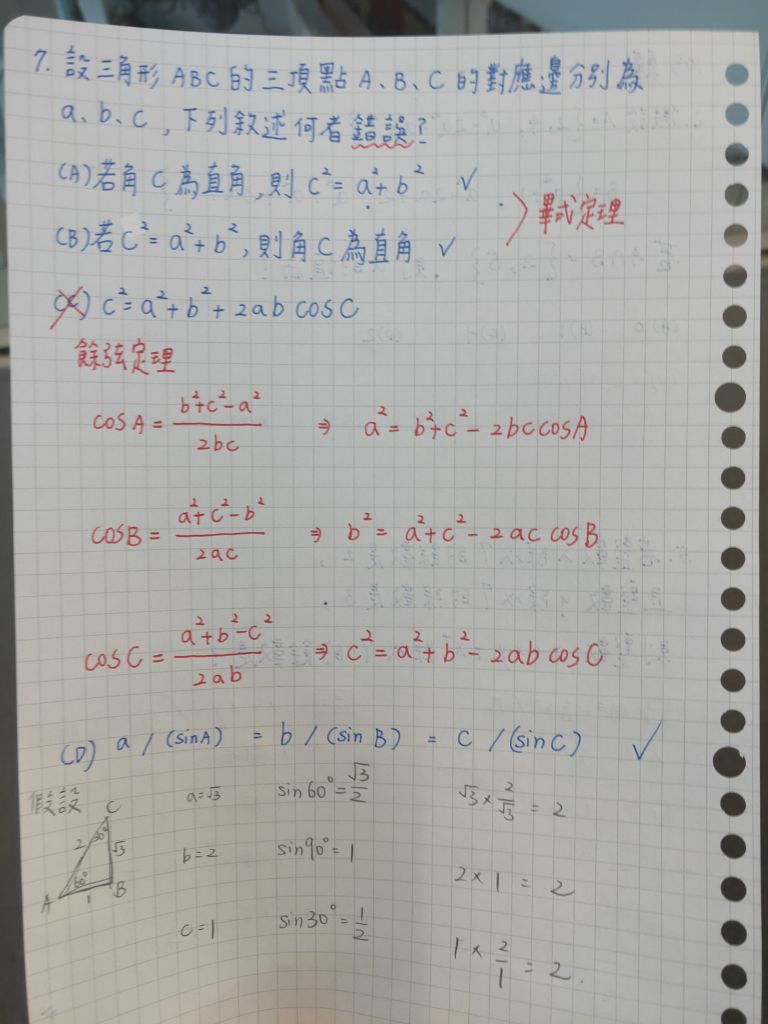 7. 設三角形 ABC 的三項點 A、B、C 的對應邊分別為
a、b、c，下列敘述何者錯誤？
(A)若角 C 為直角，則 c² = a² + b² ✓
(B)若 c² = a² + b²，則角 C 為直角 ✓
畢式定理
(C) c² = a² + b² + 2ab cosC
餘弦定理
cosA = (b²+c²-a²)/2bc ⇒ a² = b²+c² - 2bc cosA
cosB = (a²+c²-b²)/2ac ⇒ b² = a²+c² - 2ac cosB
cosC = (a²+b²-c²)/2ab ⇒ c² = a²+b² - 2ab cosC
(D) a / (sinA) = b / (sin B) = c / (sinC) ✓
假設
C
30°
2
√3
60°
A
1
B
a=√3 sin60° = √3/2 √3 × 2/√3 = 2
b=2 sin90° = 1 2 × 1 = 2
c=1 sin30° = 1/2 1 × 2/1 = 2.